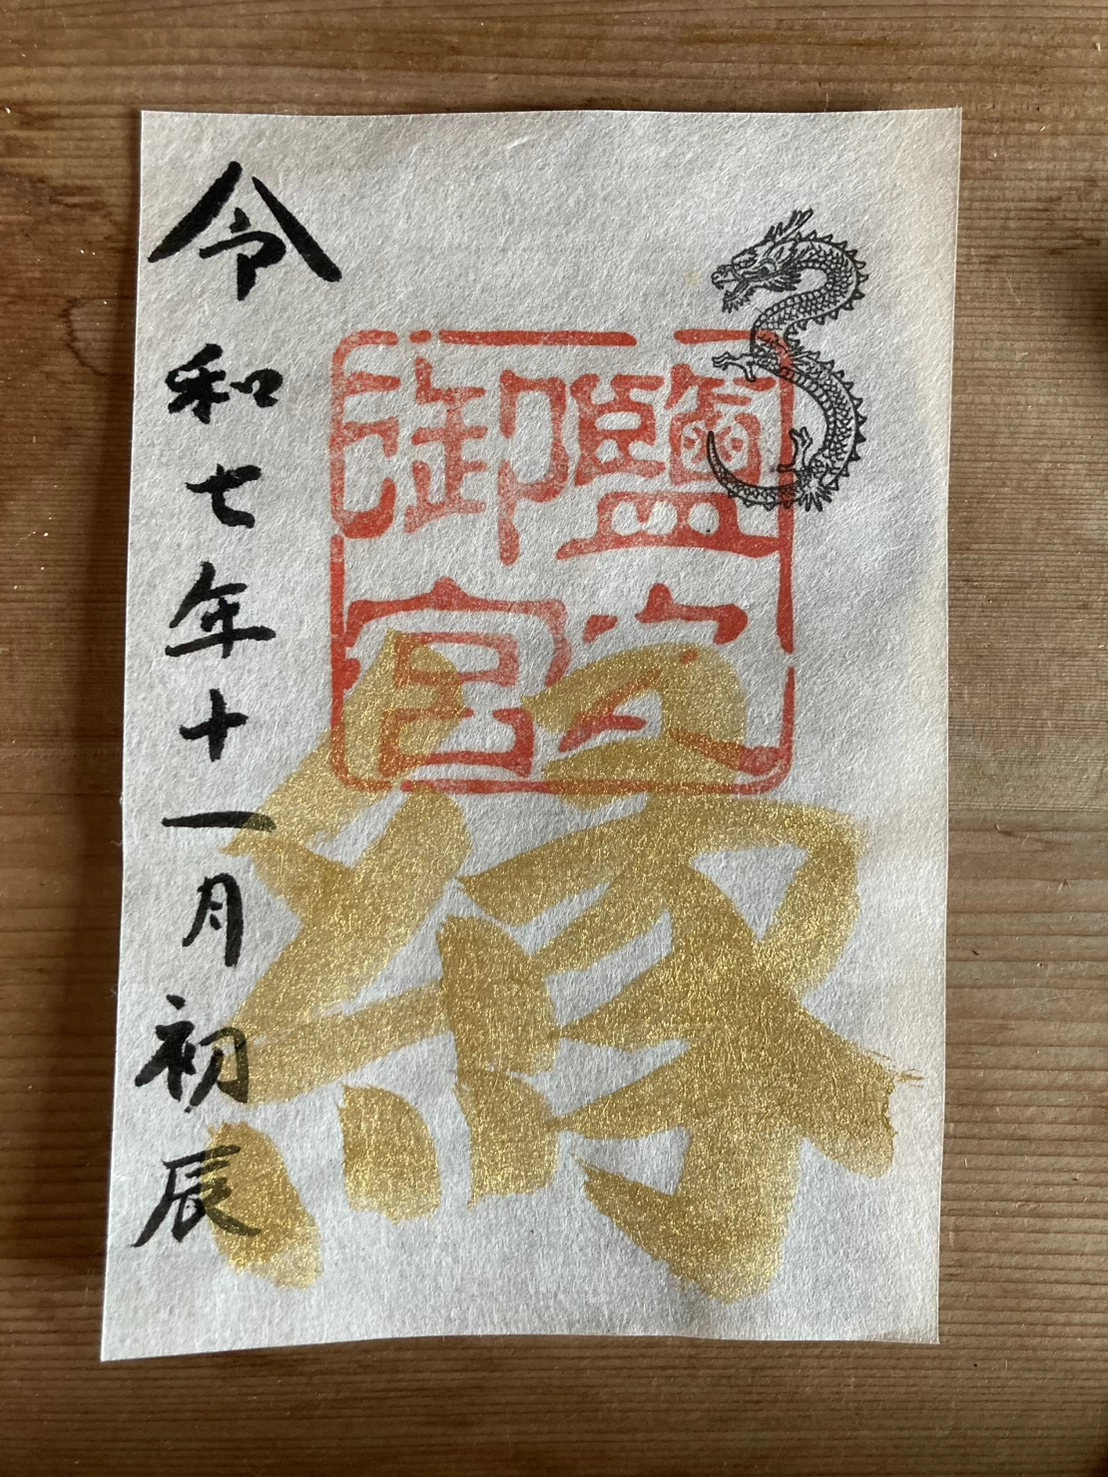 鹽之
御宮
縁
令和七年十一月初辰